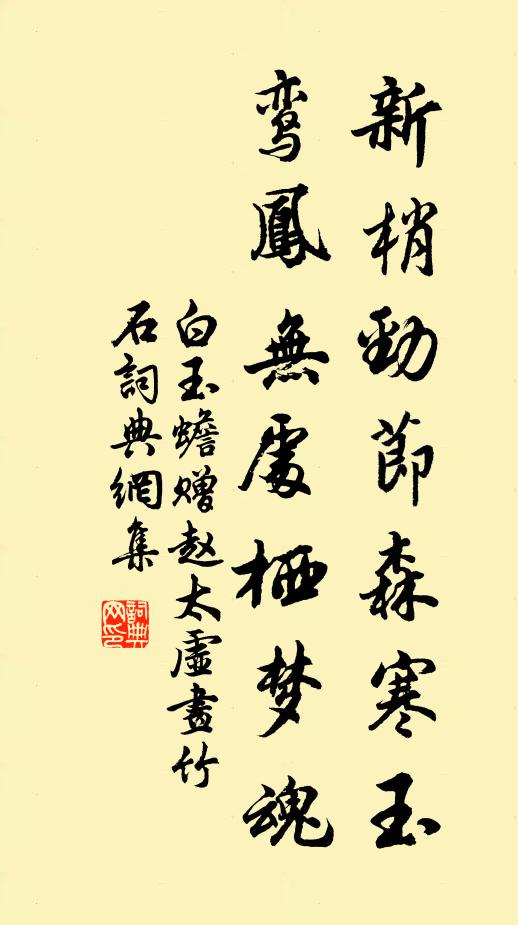 新梢勁節森寒玉
鸾鳳無處栖梦魂
白玉蟾赠赵太虛畫竹
石詞典網集
詞典网印